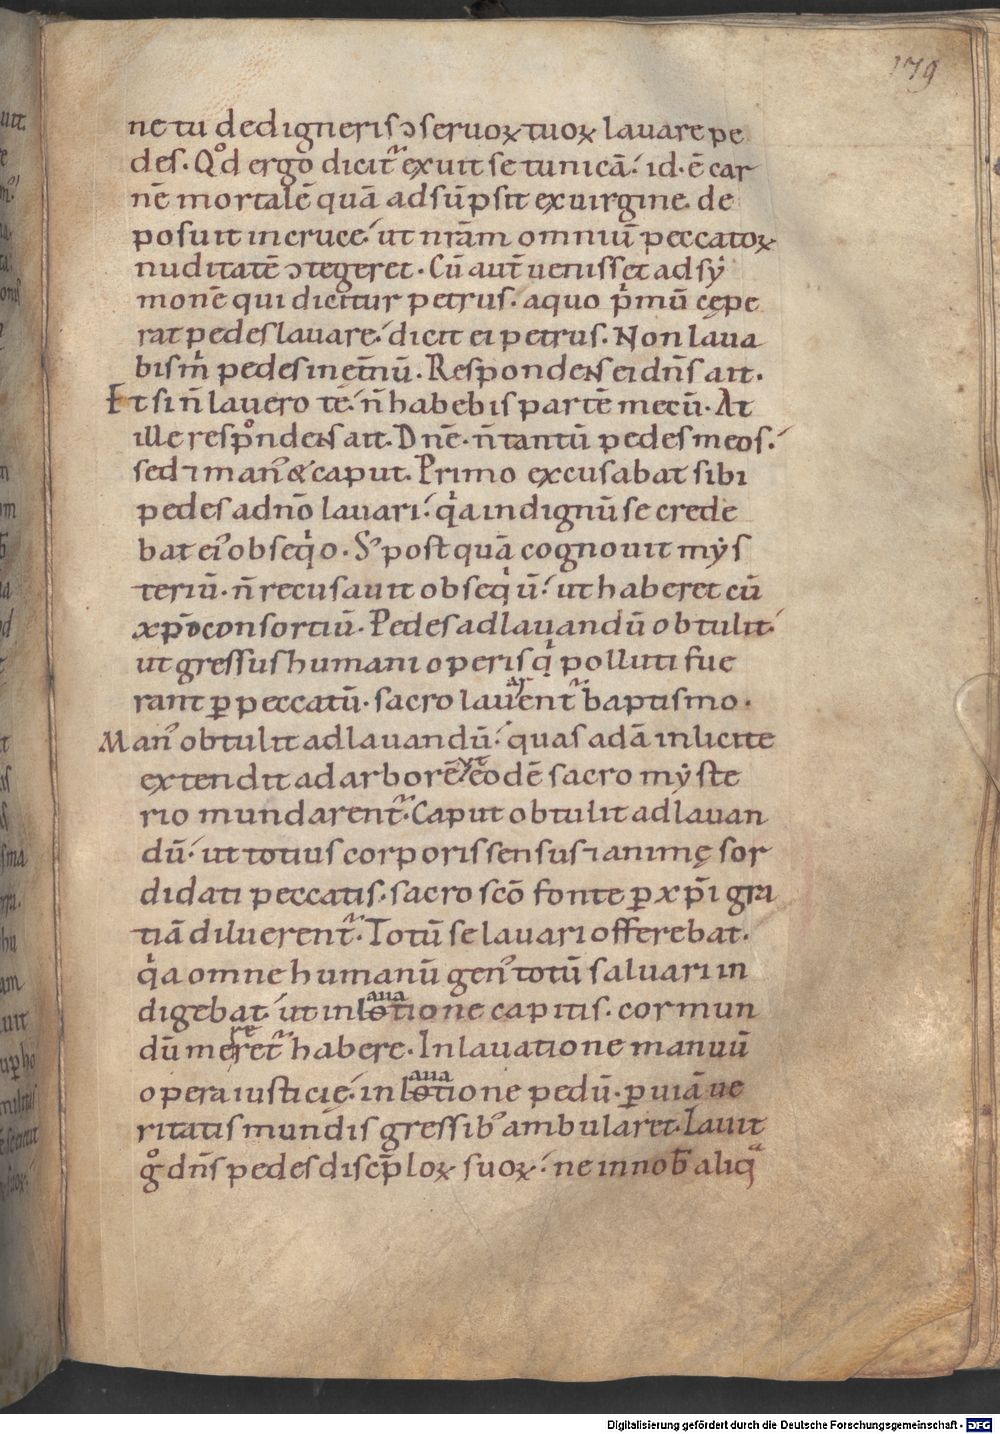 179
ne tu dedigneris ↄseruoꝝ tuoꝝ lauare pe
des. Qͦd ergo dicit᷑ exuit se tunicā. id. ē car
nē mortalē quā adsūpsit ex uirgine de
posuit in cruce. ut nr̄am omniū peccatoꝝ
nuditatē ↄtegeret. Cū aut̄ uenisset ad sẏ
monē qui dicitur petrus. a quo pͥmū cępe
rat pedes lauare. dicit ei petrus. Non laua
bis mͥ pedes inet̄nū. Respondens ei dn̄s ait.
Et si n̄ lauero te. n̄ habebis partē mecū. At
ille respͦndens ait. Dn̄e. n̄ tantū pedes meos.
sed ⁊ man᾿ & caput. Primo excusabat sibi
pedes a dn̄o lauari. qͥa indignū se crede
bat ei᾿ obseqͥo. S᾿ postquā cognouit mẏs
teriū. n̄ recusauit obseqͥū. ut haberet cū
xp̄o consortiū. Pedes ad lauandū obtulit.
ut gressus humani operis qͥ polluti fue
rant ꝑ peccatū. sacro lauarent᷑ baptismo.
Man᾿ obtulit ad lauandū. quas adā inlicite
extendit ad arborē. ut eodē sacro mẏste
rio mundarent᷑. Caput obtulit ad lauan
dū. ut totius corporis sensus ⁊ animę sor
didati peccatis. sacro sc̄o fonte ꝑ xp̄i gra
tiā diluerent᷑. Totū se lauari offerebat.
qͥa omne humanū gen᾿ totū saluari in
digebat. ut in lauatione capitis. cor mun
dū mereret᷑ habere. In lauatione manuū
opera iusticię. in lauatione pedū. ꝑ uiā ue
ritatis mundis gressib᾿ ambularet. Lauit
gͦ dn̄s pedes discip̄loꝝ suoꝝ. ne in nob̄ aliqͣ
Digitalisierung gefördert durch die Deutsche Forschungsgemeinschaft - DFG